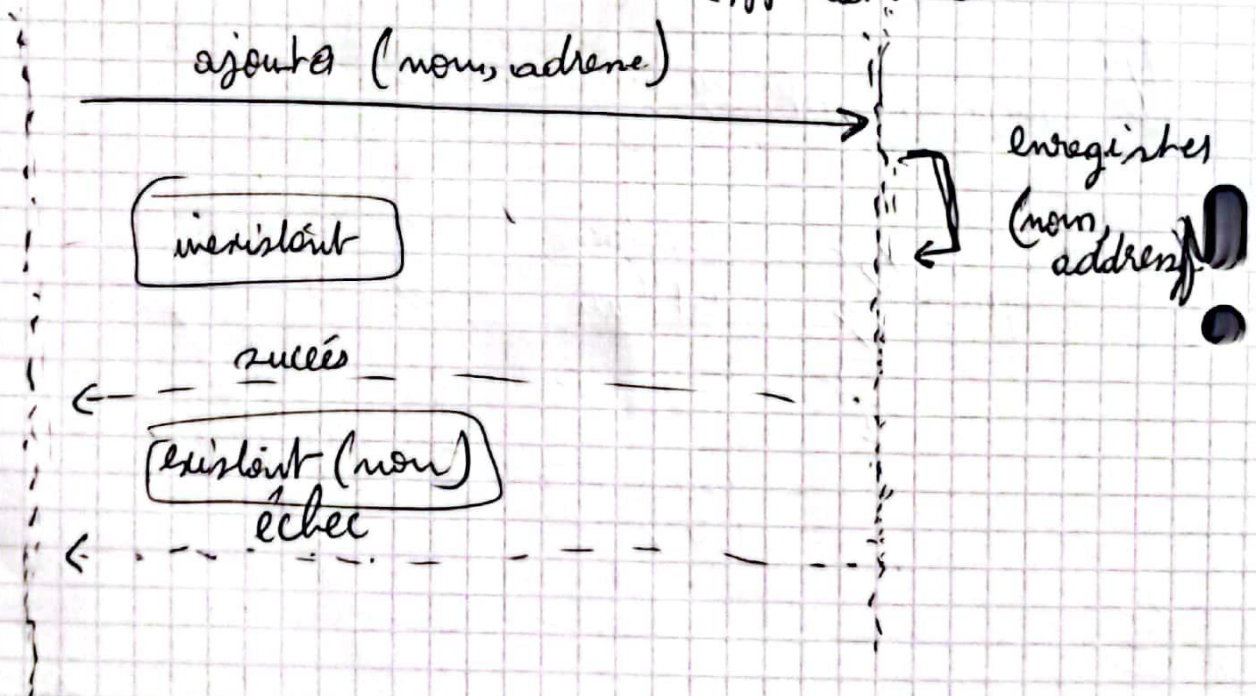 ajouter (nom, adresse)
enregistrer
(nom,
address)
inexistant
succés
existant (nom)
échec